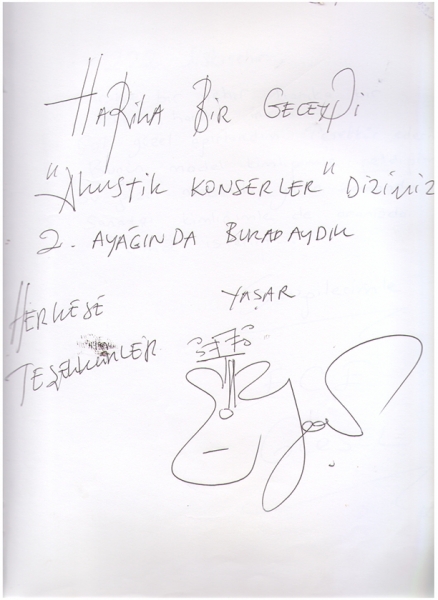 HARİKA BİR GECEYDİ
"AKUSTİK KONSERLER" DİZİMİZ
2. AYAĞINDA BURADAYDIK
HERKESE
TEŞEKKÜRLER
YAŞAR